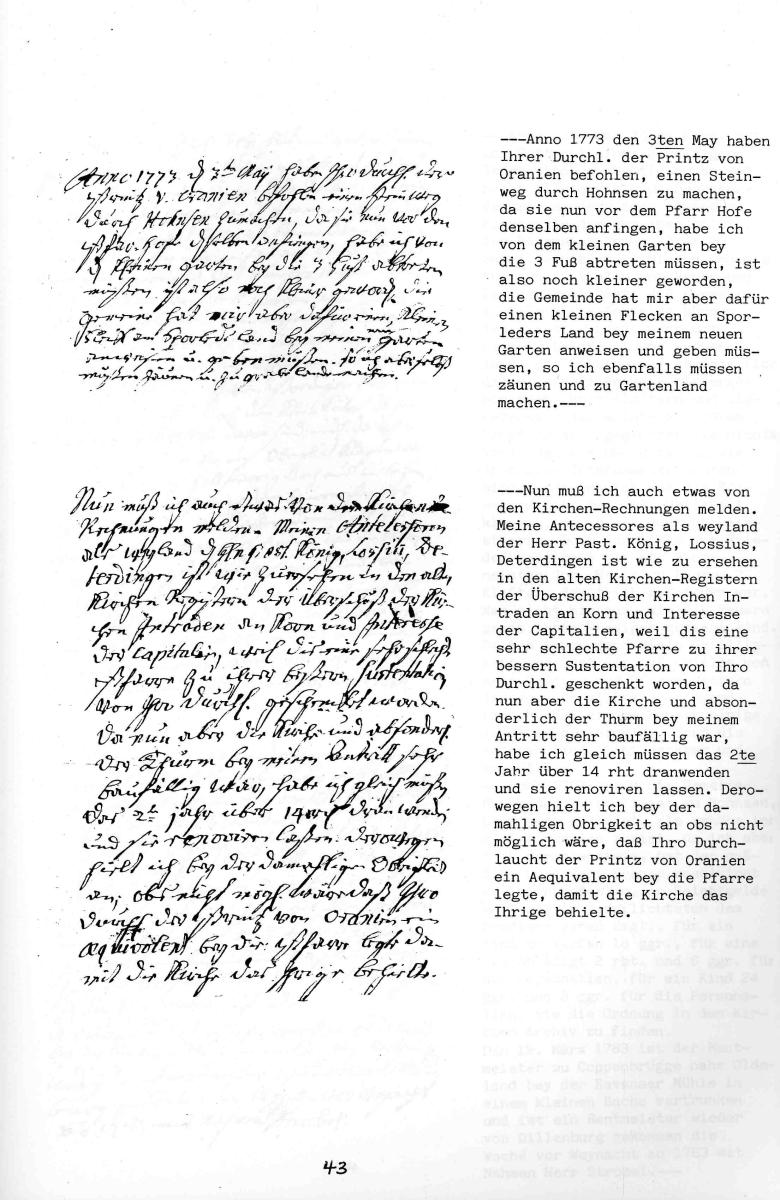 Anno 1773 d 3ten May haben Ihro Durchl. der
Printz v. Oranien befohlen einen Steinweg
durch Hohnsen zumachen, da sie nun vor dem
Pfar-Hofe denselben anfingen, habe ich von
d kleinen Garten bey die 3 Fuß abtreten
müßen, ist also noch kleiner geword. die
gemeine hat mir aber dafür einen kleinen
Fleck an Sporleders land bey meinem neuen garten
anweisen u. geben müßen. so ich
müßen zäunen u. zu land machen.
---Anno 1773 den 3ten May haben
Ihrer Durchl. der Printz von
Oranien befohlen, einen Stein-
weg durch Hohnsen zu machen,
da sie nun vor dem Pfarr Hofe
denselben anfingen, habe ich
von dem kleinen Garten bey
die 3 Fuß abtreten müssen, ist
also noch kleiner geworden,
die Gemeinde hat mir aber dafür
einen kleinen Flecken an Spor-
leders Land bey meinem neuen
Garten anweisen und geben müs-
sen, so ich ebenfalls müssen
zäunen und zu Gartenland
machen.---
Nun muß ich auch etwas von den Kirchen-
Rechnungen melden. Meine Antecessores
als weyland d H. Past. König, Lossius, De-
terdingen ist wie zu ersehen in den alten
Kirchen Registern der Überschuß der Kir-
chen Intraden an Korn und Interesse
der Capitalien, weil dis eine sehr schlechte
Pfarre zu ihrer beßern Sustentation
von Ihro Durchl. geschenket worden.
da nun aber die Kirche und absonderl.
der Thurm bey meinem Antritt sehr
baufällig war, habe ich gleich müßen
das 2te jahr über 14 rth dran wenden
und sie renoviren laßen. derowegen
hielt ich bey der damahligen Obrigkeit
an, obs nicht mögl. wäre daß Ihro
Durchl. der Printz von Oranien ein
aequivalent bey die Pfarre legte da-
mit die Kirche das Ihrige behielte.
---Nun muß ich auch etwas von
den Kirchen-Rechnungen melden.
Meine Antecessores als weyland
der Herr Past. König, Lossius,
Deterdingen ist wie zu ersehen
in den alten Kirchen-Registern
der Überschuß der Kirchen In-
traden an Korn und Interesse
der Capitalien, weil dis eine
sehr schlechte Pfarre zu ihrer
bessern Sustentation von Ihro
Durchl. geschenkt worden, da
nun aber die Kirche und abson-
derlich der Thurm bey meinem
Antritt sehr baufällig war,
habe ich gleich müssen das 2te
Jahr über 14 rht dranwenden
und sie renoviren lassen. Dero-
wegen hielt ich bey der da-
mahligen Obrigkeit an obs nicht
möglich wäre, daß Ihro Durch-
laucht der Printz von Oranien
ein Aequivalent bey die Pfarre
legte, damit die Kirche das
Ihrige behielte.
43